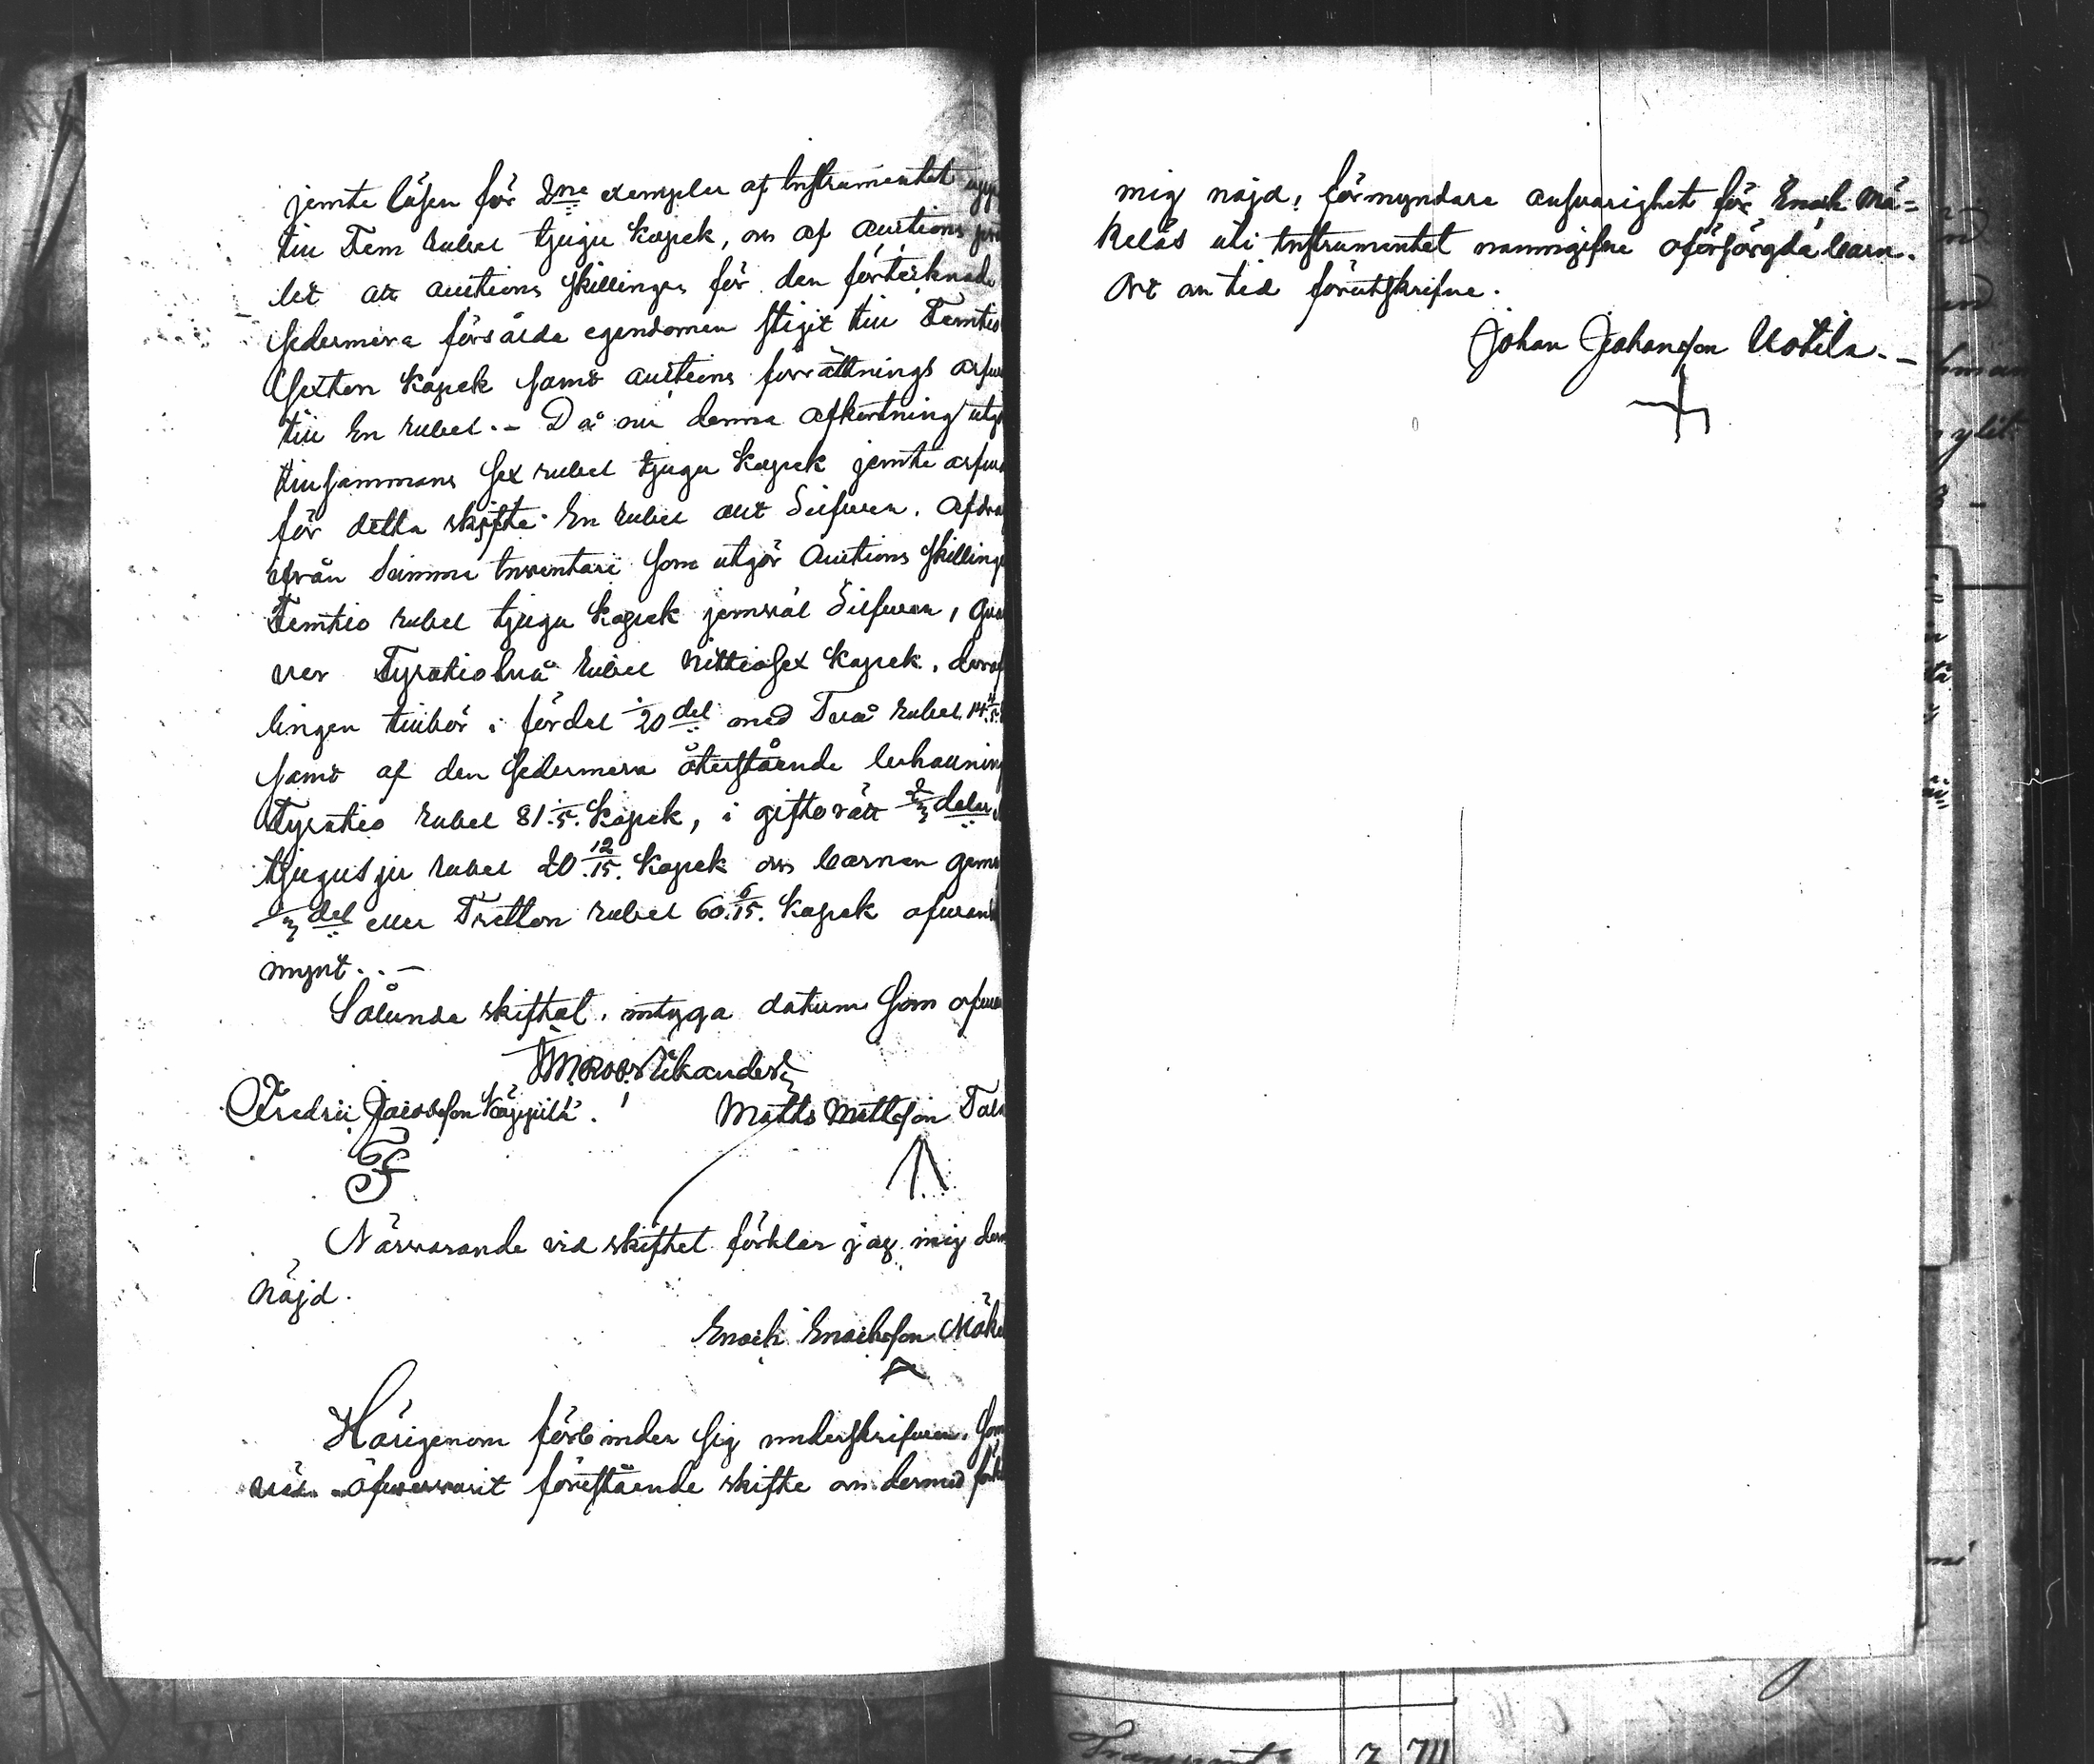 jemte lösen för 2ne exemplar af Instrumentet
till Fem rubel tjugu kopek, och af auctions
let att auctions skillingen för den förteknade
sedermera försålda egendomen stigit till Femtio
sexton kopek samt auctions förrättnings arfv
till En rubel. – Då nu denna afkortning utg
tillsammans sex rubel tjugu kopek jemte arfv
för detta skifte En rubel allt Silfver, afdra
ifrån Summa Inventarii som utgör Auctions skilling
Femtio rubel tjugu kopek jemväl Silfver,
ver Fyratiotvå rubel nittiosex kopek, deraf
lingen tillhör i fördel 1/20 del med Två rubel 14 4/5
samt af den sedermera återstående behållning
Fyratio rubel 81 1/5 kopek, i giftorätt 2/3 delar
tjugusju rubel 20 12/15 kopek och barnen gem
1/3 del eller Tretton rubel 60 6/15 kopek ofvan
mynt. –
Sålunda skiftat, intyga datum som ofvan
Fredric Jacobsson Käppilä. Matts Mattsson
Närvarande vid skiftet förklar jag mig der
nöjd.
Enoch Enochsson Mäke
Härigenom förbinder sig underskrifven, som
öfvervarit förestående skifte och dermed
mig nöjd, förmyndare ansvarighet för Enoch Mä=
keläs uti Instrumentet namngifne oförsörgda barn.
Ort och tid förutskrifne.
Johan Johansson Uotila. –